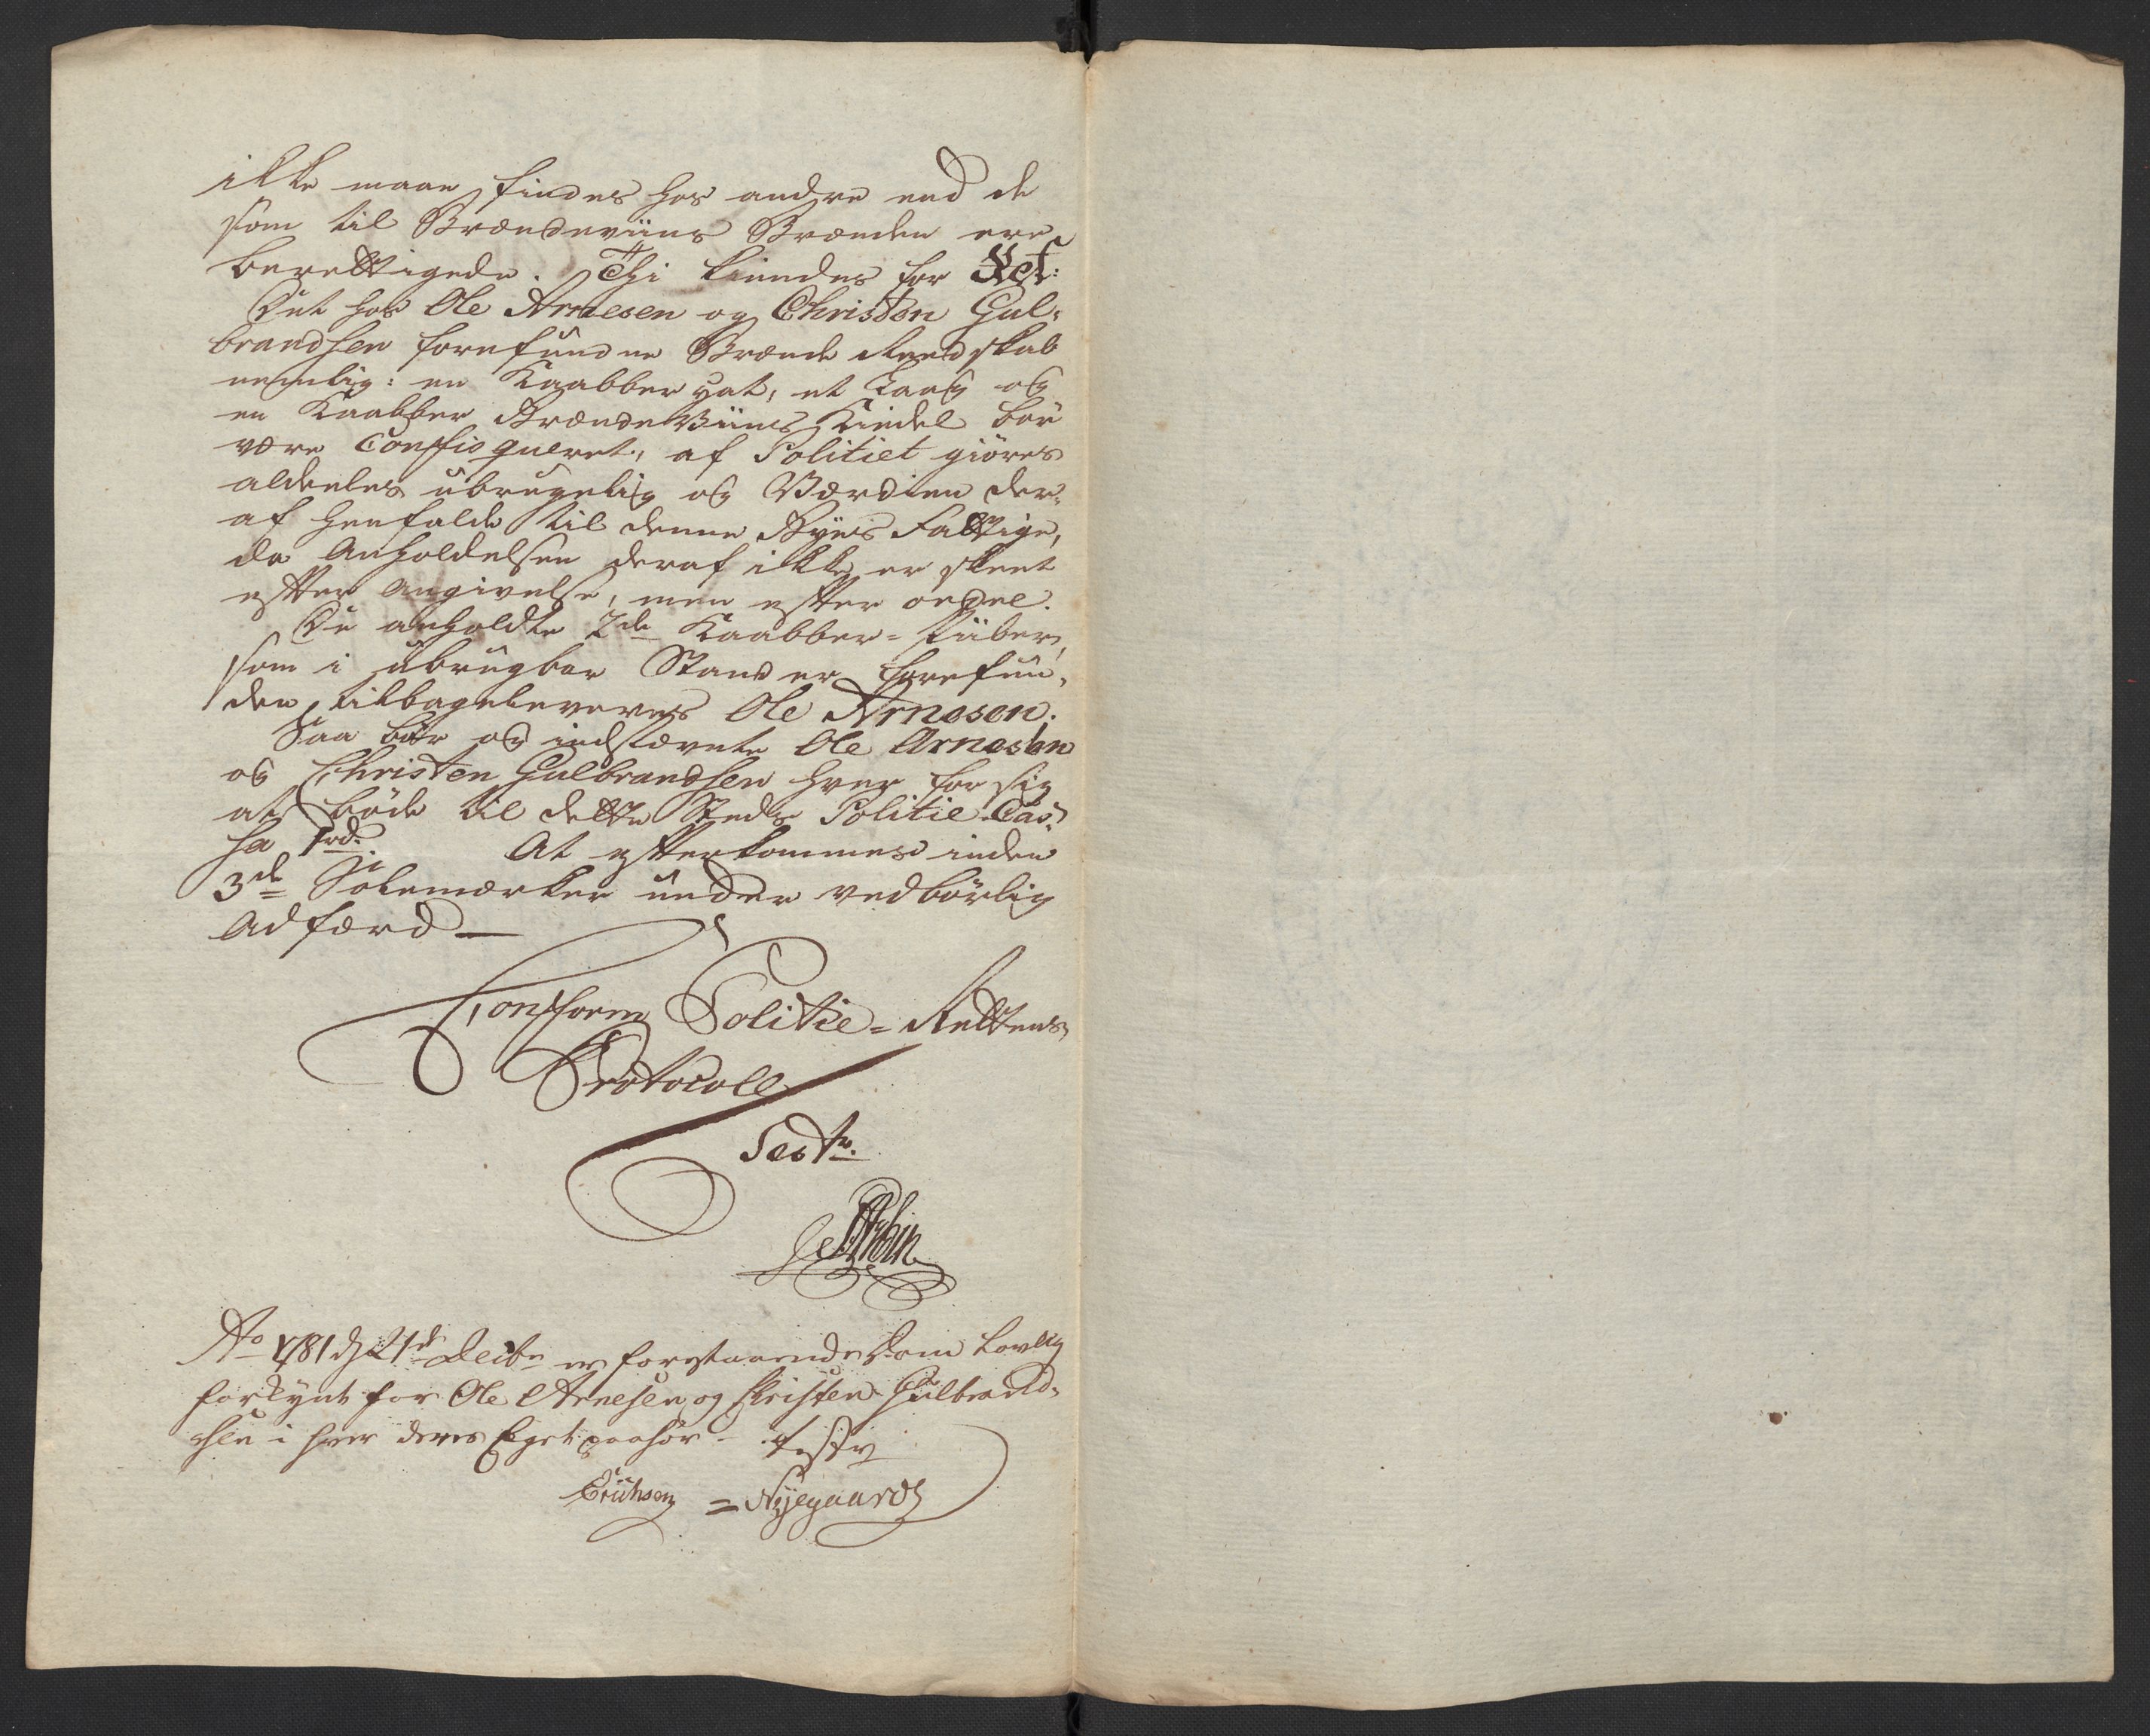 ikke maae findes hos andre end de
som til Brændeviins Brænden ere
berettigede. Thi kiendes for Ret:
Det hos Ole Arnesen og Christen Gul-
brandsen forefundne Brænde Reedskab
nemlig: en Kaabber hat, et Laag og
en Kaabber Brændeviins Kiedel bør
være Confisqueret, af Politiet giøres
aldeeles ubrugelig og Værdien der-
af henfalde til denne Byes Fattige,
da Anholdelsen deraf ikke er skeet
efter Angivelse, men efter
De anholdte 2de Kaabber-Piiber,
som i ubrugbar Stand er forefun-
den, tilbageleveres Ole Arnesen.
Saa bør og indstævnte Ole Arnesen
og Christen Gulbrandsen hver for sig
at bøde til dette Steds Politie-Cas-
sa 1rd. At efterkommes inden
3de Solemærker under vedbørlig
Adfærd —
Conform Politie-Rettens
Protocoll
Test.
Ao 1781 d 21de Decbr er forestaaende Dom lovlig
forkynt for Ole Arnesen og Christen Gulbrand-
sen i hver deres Eget paahør - Test
Erichsen = Nyegaard